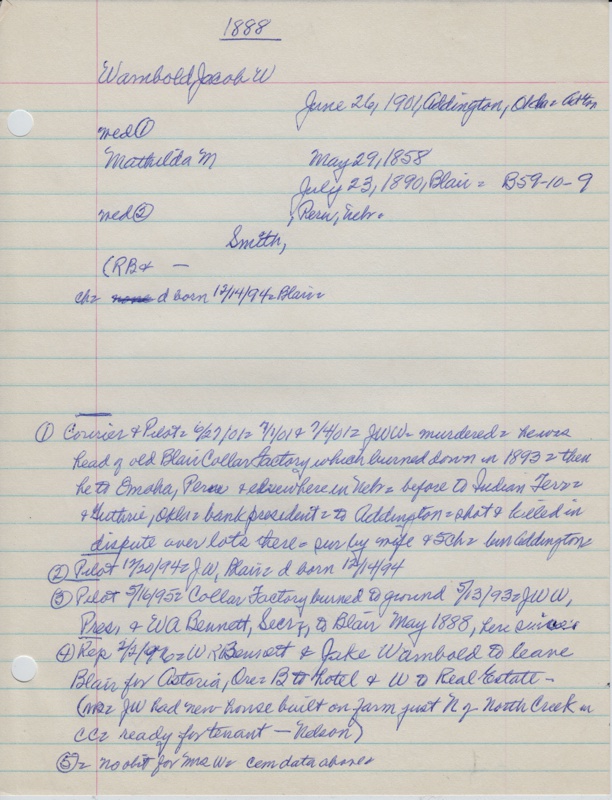 1888
Wambold, Jacob W
June 26, 1901, Addington, Okla =
med ①
Mathilda M May 29, 1858
July 23, 1890, Blair = B59-10-9
med ② , Peru, Nebr.
Smith,
(RB& —
ch= none d born 12/14/94= Blair=
① Courier & Pilot= 6/27/01= 7/1/01 & 7/4/01= JWW= murdered= he was
head of old Blair Collar Factory which burned down in 1893= then
he to Omaha, Peru & elsewhere in Nebr= before to Indian Terr=
& Guthrie, Okla= bank president= to Addington= shot & killed in
dispute over lots there= sur by wife & 5ch= bur Addington=
② Pilot 12/20/94= JW, Blair= d born 12/14/94
③ Pilot 5/16/95= Collar Factory burned to ground 5/13/93= JWW,
Pres, & WA Bennett, Secry, to Blair May 1888, here since
④ Rep 2/2/ = W R Bennett & Jake Wambold to leave
Blair for Astoria, Ore= B to hotel & W to Real Estate-
= JW had new house built on farm just N of North Creek in
CC= ready for tenant — Nelson)
⑤= no obit for Mrs W= cem data above=